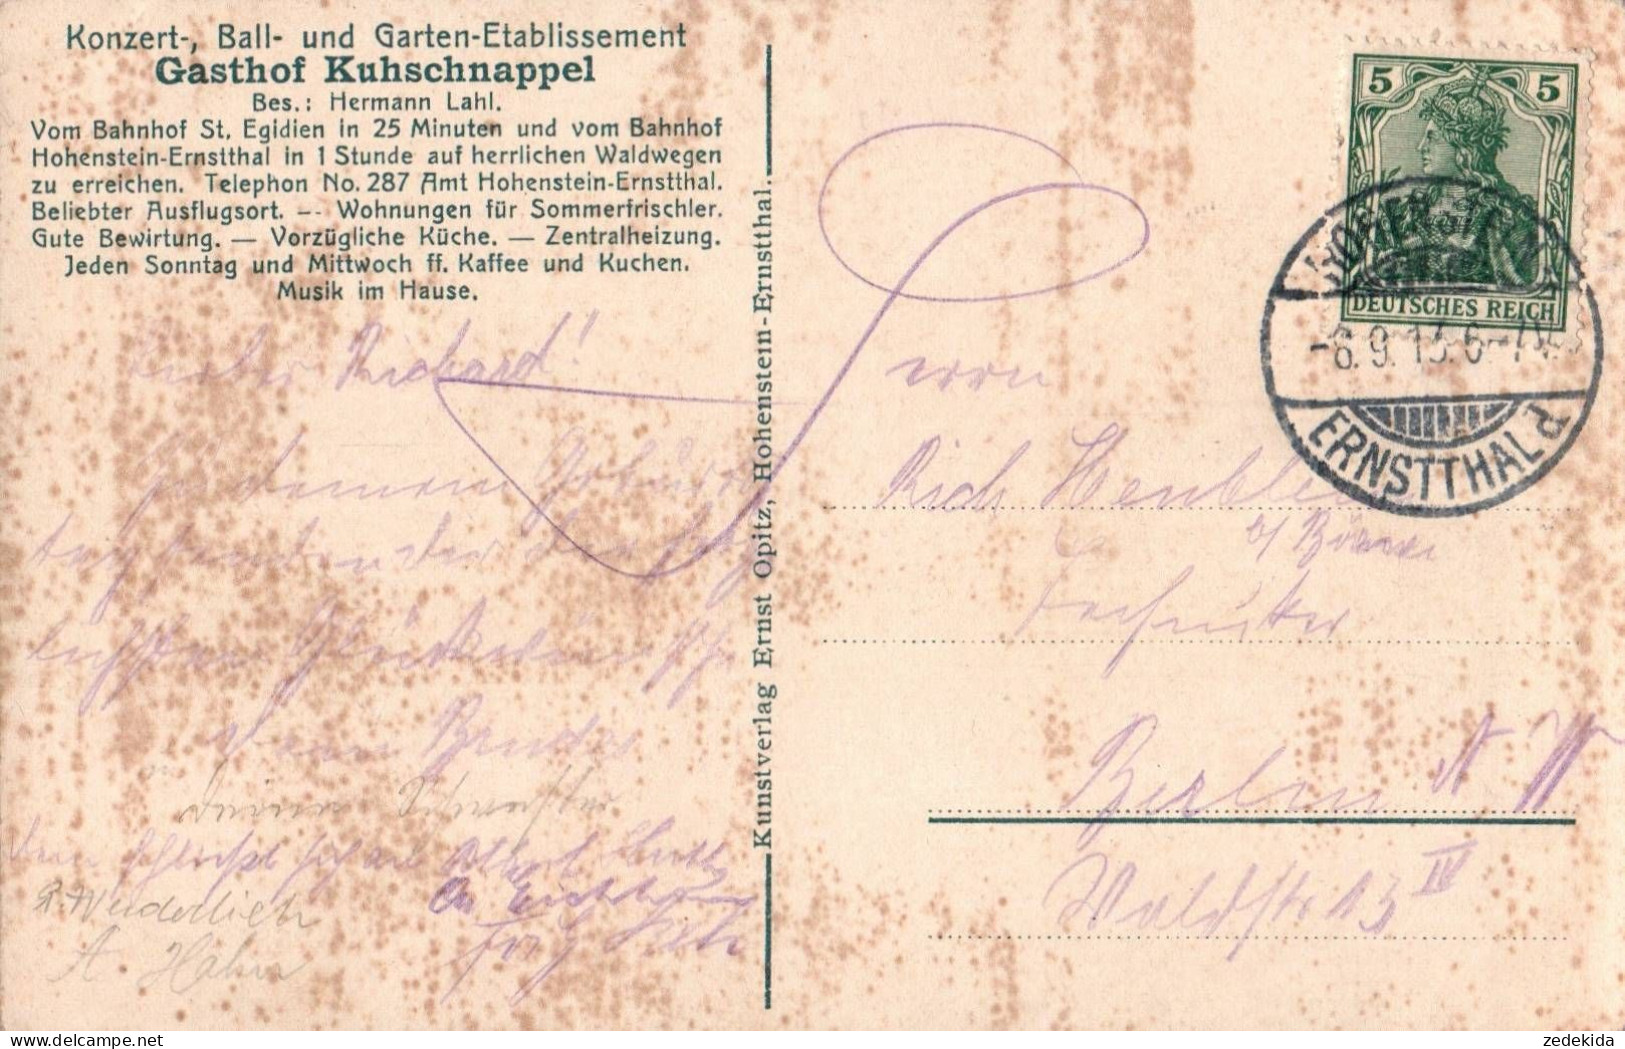 Konzert-, Ball- und Garten-Etablissement
Gasthof Kuhschnappel
Bes.: Hermann Lahl.
Vom Bahnhof St. Egidien in 25 Minuten und vom Bahnhof
Hohenstein-Ernstthal in 1 Stunde auf herrlichen Waldwegen
zu erreichen. Telephon No. 287 Amt Hohenstein-Ernstthal.
Beliebter Ausflugsort. -- Wohnungen für Sommerfrischler.
Gute Bewirtung. — Vorzügliche Küche. — Zentralheizung.
Jeden Sonntag und Mittwoch ff. Kaffee und Kuchen.
Musik im Hause.
Lieber Richard!
Zu deinem Geburts
tag senden dir die herz
lichsten Glückwünsche
dein Bruder
deine Schwester
A. Hahn
Kunstverlag Ernst Opitz, Hohenstein-Ernstthal.
5 5
DEUTSCHES REICH
HOHENSTEIN
ERNSTTHAL
Herrn
Rich
Berlin N W
Waldstr 13 IV
zedekida